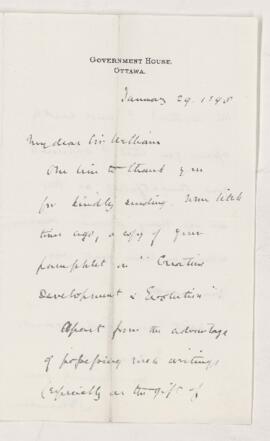 GOVERNMENT HOUSE.
OTTAWA.
January 29. 1895
My dear Sir William
One line to thank you
for kindly sending some little
time ago, a copy of your
pamphlet on "Creative
Development & Evolution"
Apart from the advantage
of possessing such writings
(especially as the gift of